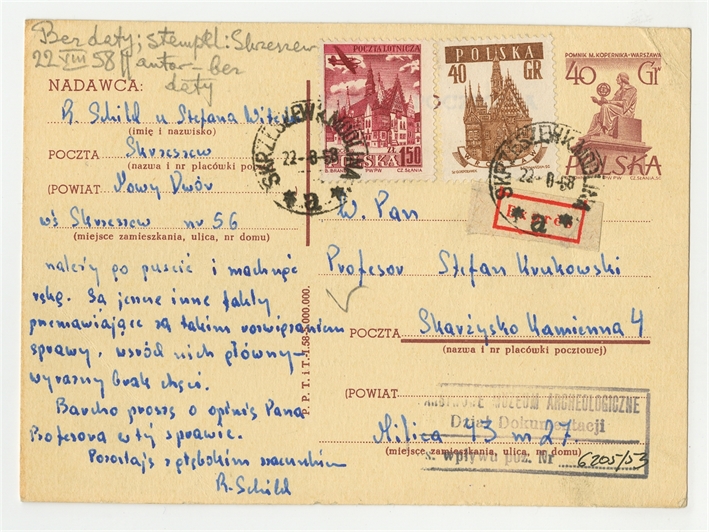 Bez daty; stempel: Skrzeszew
22 VIII 58 autor - bez
daty
NADAWCA:
R. Schild u Stefana
(imię i nazwisko)
POCZTA Skrzeszew
(nazwa i nr placówki
(POWIAT Nowy Dwór
wś Skrzeszew nr 56
(miejsce zamieszkania, ulica, nr domu)
należy po puścić i machnąć
ręką. Są jeszcze inne fakty
przemawiające za takim rozwiązaniem
sprawy, wśród nich główny-
wyraźny brak chęci.
Bardzo proszę o opinię Pana
Profesora w tej sprawie.
Pozostaję z głębokim szacunkiem
R. Schild
P. P. T. i T.
POCZTA LOTNICZA
POLSKA
ZŁ 1.50
PWPW
CZ. SŁANIA
POLSKA
40 GR
POMNIK M. KOPERNIKA-WARSZAWA
40 Gr
POLSKA
SKRZESZEW K. MODLINA
22-8-58
a
SKRZESZEW K. MODLINA
22-8-58
a
Expres
W. Pan
Profesor Stefan Krukowski
POCZTA Skarżysko Kamienna 4
(nazwa i nr placówki pocztowej)
(POWIAT
MUZEUM ARCHEOLOGICZNE
Dział Dokumentacji
Milica 43 m 27.
(miejsce zamieszkania, ulica, nr domu)
wpływu poz. Nr 6205/53